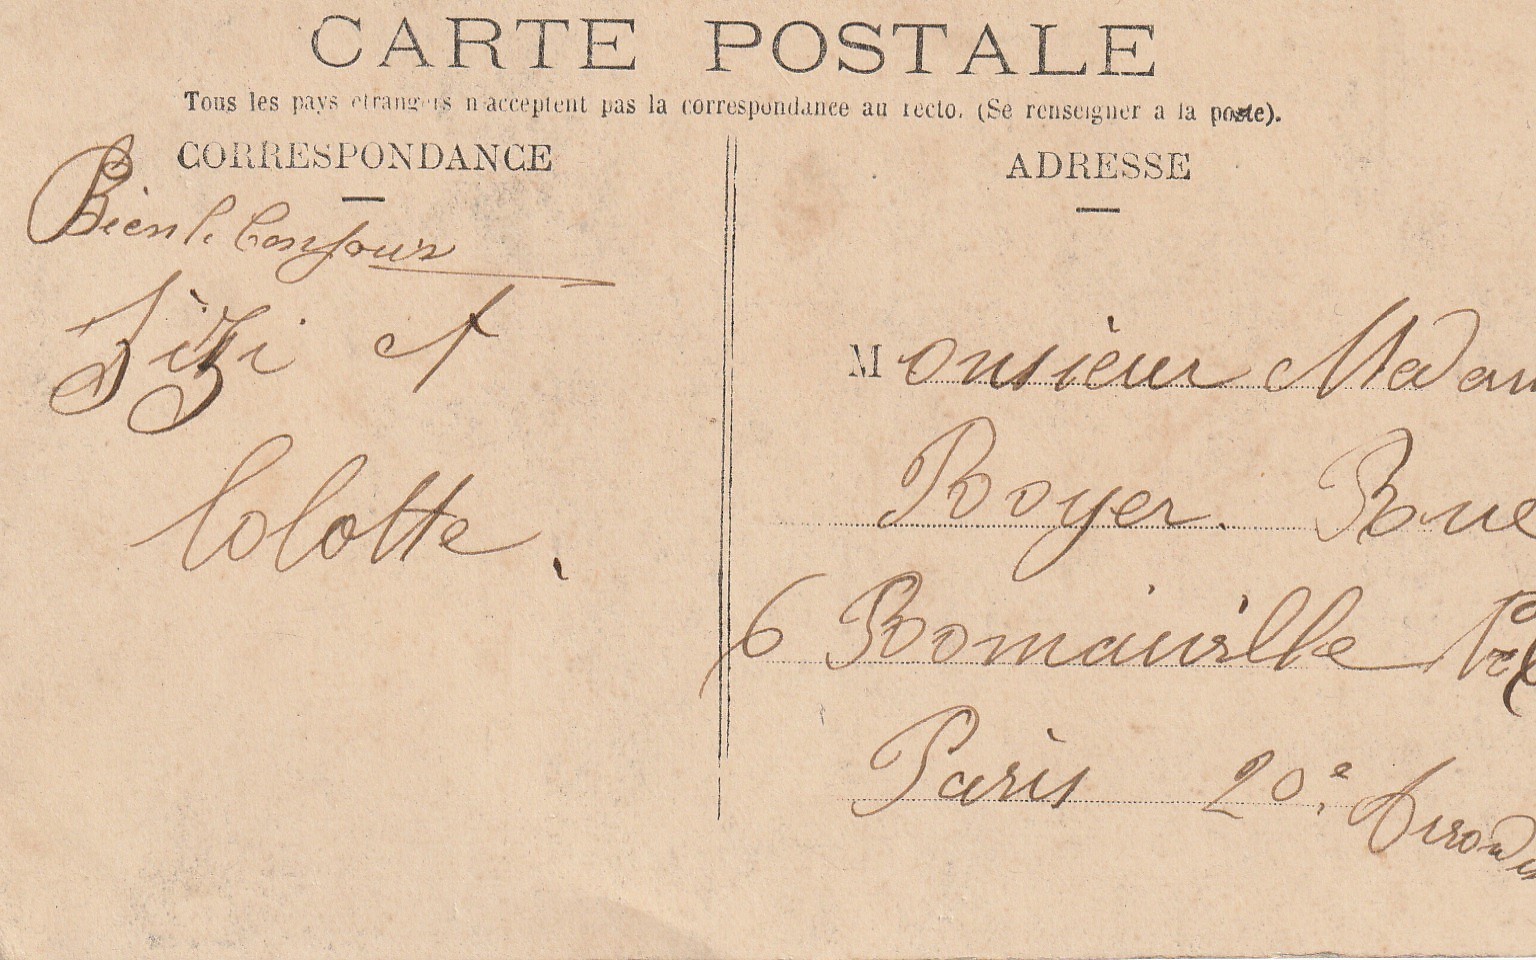 CARTE POSTALE
Tous les pays etrangers n'acceptent pas la correspondance au recto. (Se renseigner a la poste).
CORRESPONDANCE
Bien le bonjour
Zizi et
Colotte.
ADRESSE
Monsieur Madam
Royer. Rue
6 Romainville
Paris 20e Arrondis